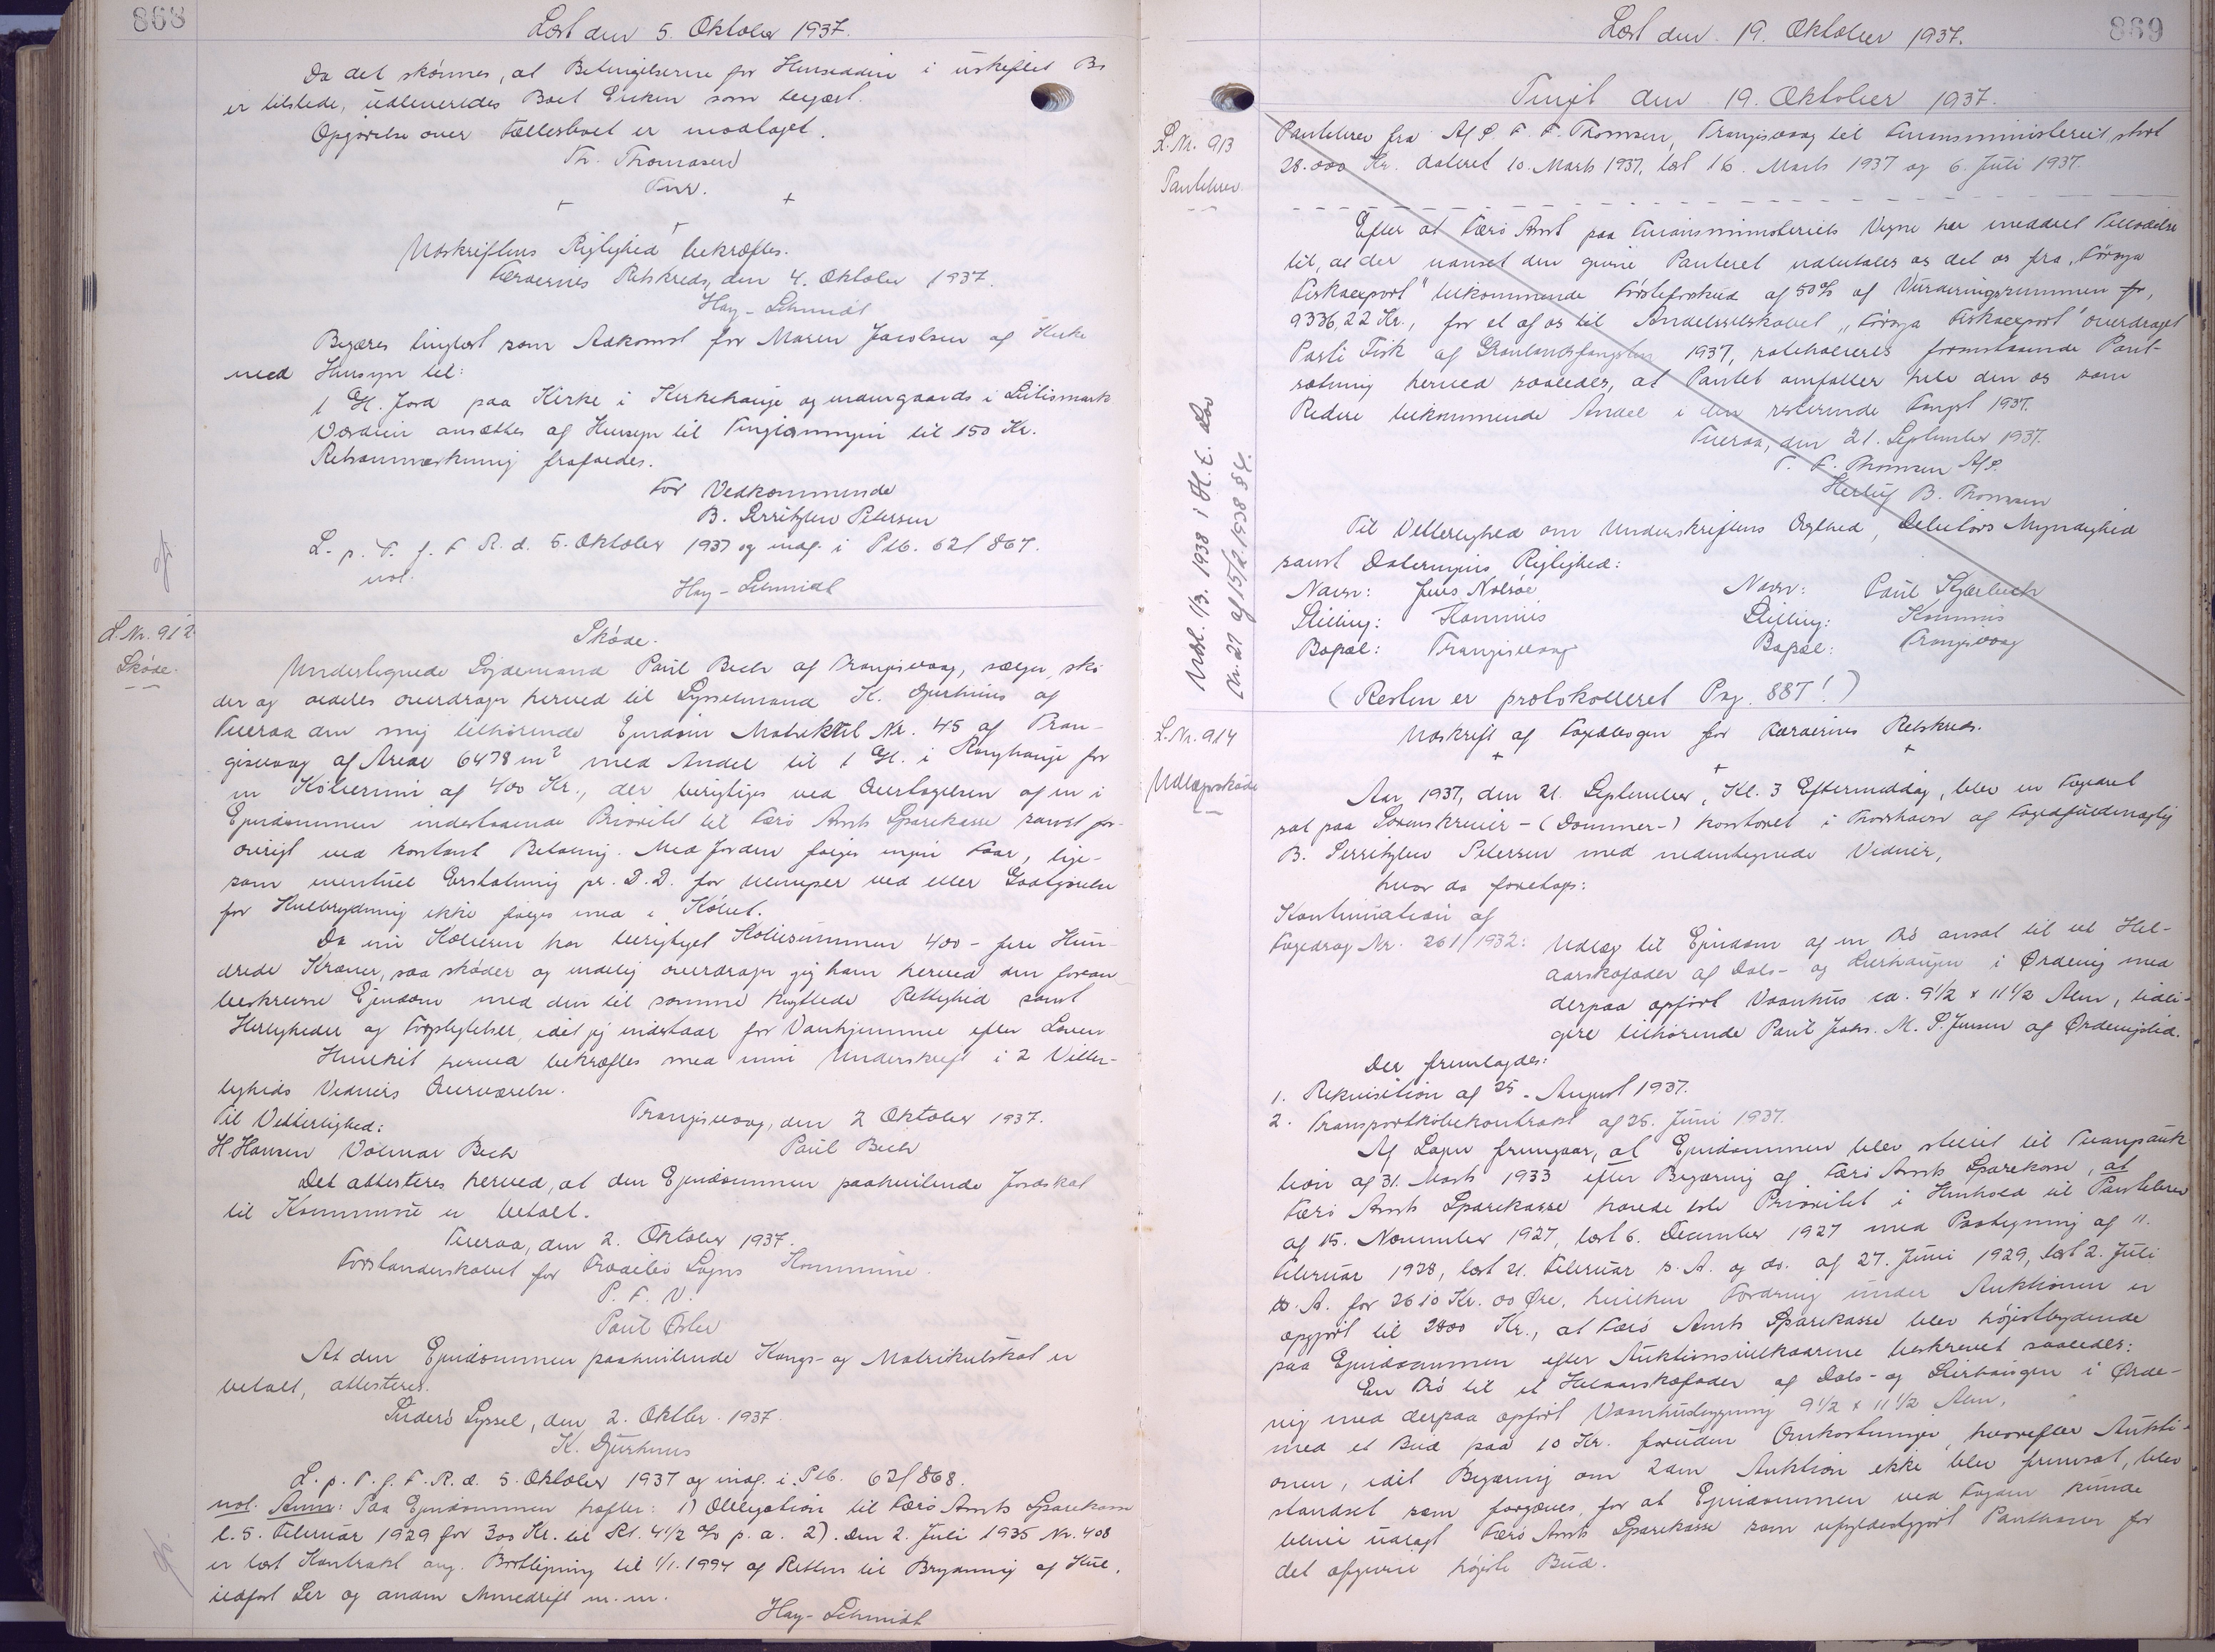 868
Læst den 5. Oktober 1937.
Da det skønnes, at Betingelserne for Hensidden i uskiftet Bo
er tilstede, udleveredes Boet Enken som begært.
Opgørelse over Fællesboet er modtaget.
Th. Thomasen
Fmr.
Udskriftens Rigtighed bekræftes.
Færøernes Retskreds, den 4. Oktober 1937.
Hay-Schmidt
Begæres tinglæst som Adkomst for Maren Jacobsen af Kirke
med Hensyn til:
1 Gl. Jord paa Kirke i Kirkehauge og udengaards i Litlismark
Værdien ansættes af Hensyn til Tinglæsningen til 150 Kr.
Retsanmærkning frafaldes.
For Vedkommende
B. Serritzlew Petersen
L. p. T. f. F. R. d. 5. Oktober 1937 og indf. i Ptb. 62/867.
vol.
Hay-Schmidt
L. Nr. 912
Skøde.
Skøde.
Undertegnede Lejdemand Paul Bech af Trangisvaag, sælger, skø
der og aldeles overdrager herved til Sysselmand K. Djurhuus af
Tveraa den mig tilhørende Ejendom Matrikul Nr. 45 af Tran-
gisvaag af Areal 6478 m² med Andel til 1 Gl. i Ranghauge for
en Købesum af 400 Kr., der berigtiges ved Overtagelsen af en i
Ejendommen indestaaende Prioritet til Færø Amts Sparekasse samt for-
øvrigt ved kontant Betaling. Med Jorden følger ingen Faar, lige-
som eventuel Erstatning pr. D.D. for Ulemper ved eller Godtgørelse
for Kulbrydning ikke følger med i Købet.
Da nu Køberen har berigtiget Købesummen 400 - fire Hun-
drede Kroner, saa skøder og endelig overdrager jeg ham herved den foran
beskrevne Ejendom med den til samme knyttede Rettighed samt
Herligheder og Forpligtelser, idet jeg indestaar for Vanhjemmel efter Loven
Hvilket herved bekræftes med min Underskrift i 2 Vitter-
ligheds Vidners Overværelse.
Trangisvaag, den 2 Oktober 1937.
Til Vitterlighed:
Paul Bech
H Hansen Volmar Bech
Det attesteres herved, at den Ejendommen paahvilende Jordskat
til Kommune er betalt.
Tveraa, den 2. Oktober 1937.
Forstanderskabet for Frodebø Sogns Kommune.
P. F. V.
Paul
At den Ejendommen paahvilende Konge- og Matrikulskat er
betalt, attesteres.
Suderø Syssel, den 2. Oktbr. 1937.
K. Djurhuus
L. p. T. f. F. R. d. 5. Oktober 1937 og indf. i Ptb. 62/868.
vol. Anm: Paa Ejendommen hæfter: 1) Obligation til Færø Amts Sparekasse
l. 5. Februar 1929 for 300 Kr. til Rt. 4½ % p. a. 2). Den 2. Juli 1935 Nr. 408
er læst Kontrakt ang. Bortlejning til 1/1. 1994 af Retten til Brydning af Kul,
ildfast Ler og anden Minedrift m. m.
Hay-Schmidt
869
Læst den 19. Oktober 1937.
Tingl. den 19. Oktober 1937.
L. Nr. 913
Pantebrev
Pantebrev fra A/S. T. F. Thomsen, Trangisvaag til Finansministeriet stort
28.000 Kr. dateret 10. Marts 1937, læst 16. Marts 1937 og 6. Juli 1937.
Efter at Færø Amt paa Finansministeriets Vegne har meddelt Tilladelse
til, at der uanset den givne Panteret udbetales os det os fra "Föroya
Fiskaexport" tilkommende Førsteforskud af 50% af Vurderingssummen,
9336,22 Kr., for et af os til Andelsselskabet "Föroya Fiskaexport" overdraget
Parti Fisk af Grønlandsfangsten 1937, ratihaberes foranstaaende Pant-
sætning herved saaledes, at Pantet omfatter hele den os som
Redere tilkommende Andel i den resterende Fangst 1937.
Tveraa, den 21. September 1937.
T. F. Thomsen A/S.
Herluf B. Thomsen
Til Vitterlighed om Underskriftens Ægthed, Debitors Myndighed
samt Dateringens Rigtighed:
Navn: Jens Nolsøe Navn: Paul Kjærbech
Stilling: Kommis Stilling: Kommis
Bopæl: Trangisvaag Bopæl: Trangisvaag
(Resten er protokolleret Pag. 887!)
Udsl. 1/3. 1938 i H. t. Lov
Nr. 27 af 15/2. 1938 § 4.
L. Nr. 914
Udlægsskøde
Udskrift af Fogedbogen for Færøernes Retskreds.
Aar 1937, den 21. September, Kl. 3 Eftermiddag, blev en Fogedret
sat paa Sorenskriver- (Dommer-) kontoret i Thorshavn af Fogedfuldmægtig
B. Serritzlew Petersen med undertegnede Vidner,
hvor da foretoges:
Kontinuation af
Fogedsag Nr. 261/1932: Udlæg til Ejendom af en Trø ansat til et Hel-
aarskofoder af Dals- og Lierhaugen i Ørdevig med
derpaa opført Vaanhus ca. 9½ x 11½ Alen, tidli-
gere tilhørende Paul Johs. M. P. Jensen af Ørdevigslid.
Der fremlagdes:
1. Rekvisition af 25. August 1937.
2. Transportkøbekontrakt af 25. Juni 1937.
Af Sagen fremgaar, at Ejendommen blev stillet til Tvangsauk
tion af 31. Marts 1933 efter Begæring af Færø Amts Sparekasse, at
Færø Amts Sparekasse havde 1ste Prioritet i Henhold til Pantebrev
af 15. November 1927, læst 6. December 1927 med Paategning af 11.
Februar 1928, læst 21. Februar s. A. og do. af 27. Juni 1929, læst 2. Juli
s. A. for 2610 Kr. 00 Øre, hvilken Fordring under Auktionen er
opgjort til 2800 Kr., at Færø Amts Sparekasse blev højestbydende
paa Ejendommen efter Auktionsvilkaarene beskrevet saaledes:
En Trø til et Helaarskofoder af Dals- og Lierhaugen i Ørde-
vig med derpaa opført Vaanhusbygning 9½ x 11½ Alen,
med et Bud paa 10 Kr. foruden Omkostninger, hvorefter Aukti-
onen, idet Begæring om 2den Auktion ikke blev fremsat, blev
standset som forgæves, for at Ejendommen ved Fogden kunde
blive udlagt Færø Amts Sparekasse som ufyldestgjort Panthaver for
det afgivne højeste Bud.